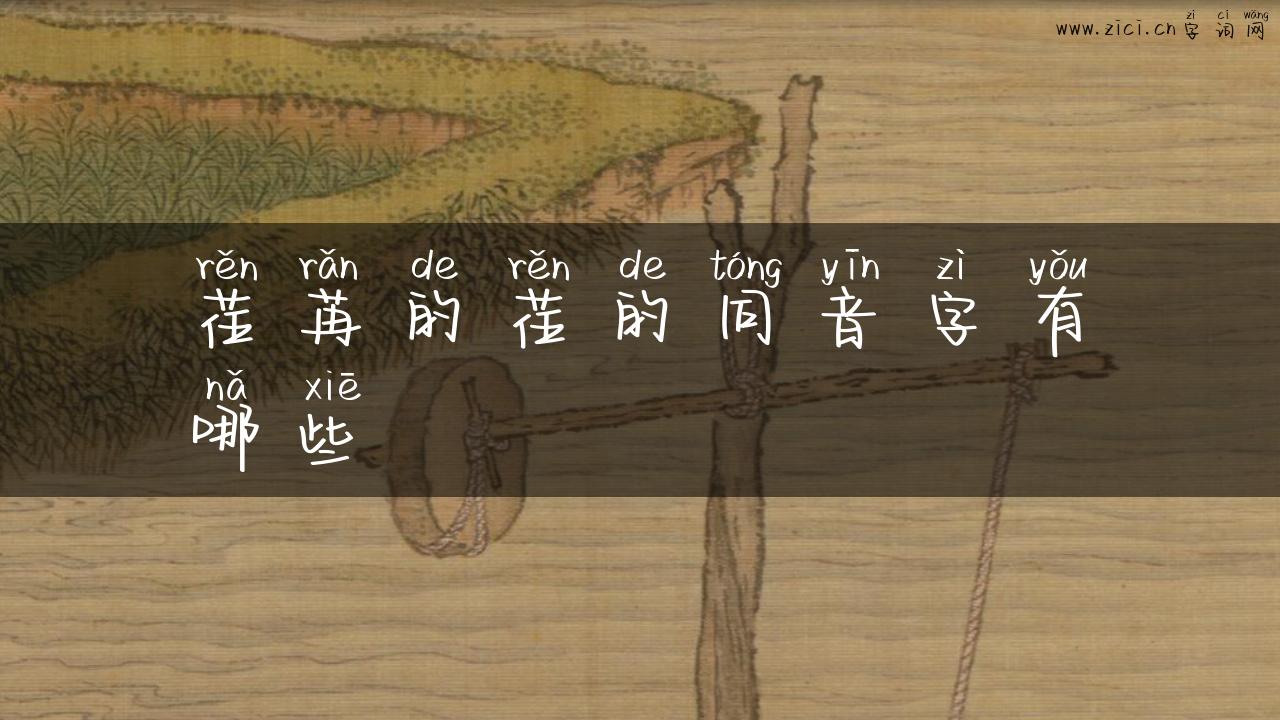 zì cí wǎng
www.zici.cn 字词网
rěn rǎn de rěn de tóng yīn zì yǒu
荏苒的荏的同音字有
nǎ xiē
哪些